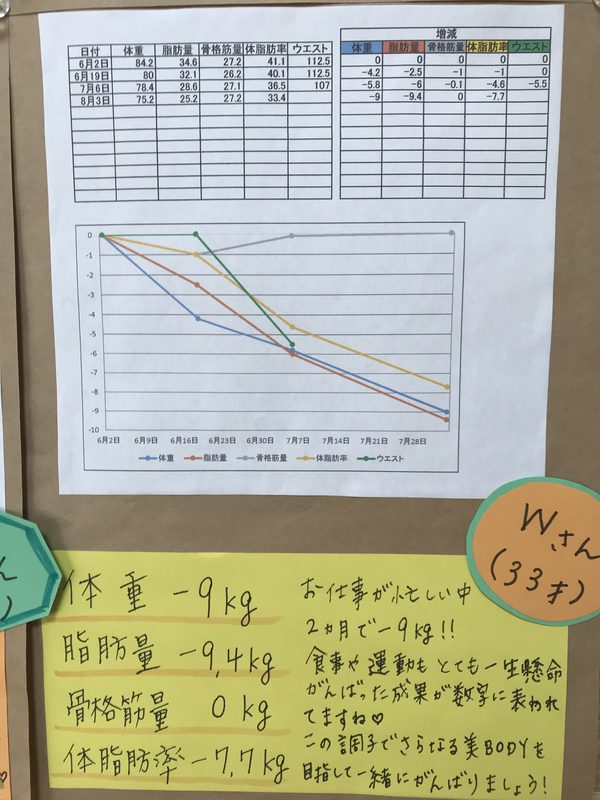 増減
日付 体重 脂肪量 骨格筋量 体脂肪率 ウエスト
6月2日 84.2 34.6 27.2 41.1 112.5
6月19日 80 32.1 26.2 40.1 112.5
7月6日 78.4 28.6 27.1 36.5 107
8月3日 75.2 25.2 27.2 33.4
体重 脂肪量 骨格筋量 体脂肪率 ウエスト
0 0 0 0 0
-4.2 -2.5 -1 -1 0
-5.8 -6 -0.1 -4.6 -5.5
-9 -9.4 0 -7.7
0
-1
-2
-3
-4
-5
-6
-7
-8
-9
-10
6月2日 6月9日 6月16日 6月23日 6月30日 7月7日 7月14日 7月21日 7月28日
体重 脂肪量 骨格筋量 体脂肪率 ウエスト
Wさん
(33才)
体重 -9kg
脂肪量 -9,4kg
骨格筋量 0kg
体脂肪率 -7,7kg
お仕事が忙しい中
2ヵ月で-9kg!!
食事や運動もとても一生懸命
がんばった成果が数字に表われ
てますね♡
この調子でさらなる美BODYを
目指して一緒にがんばりましょう!